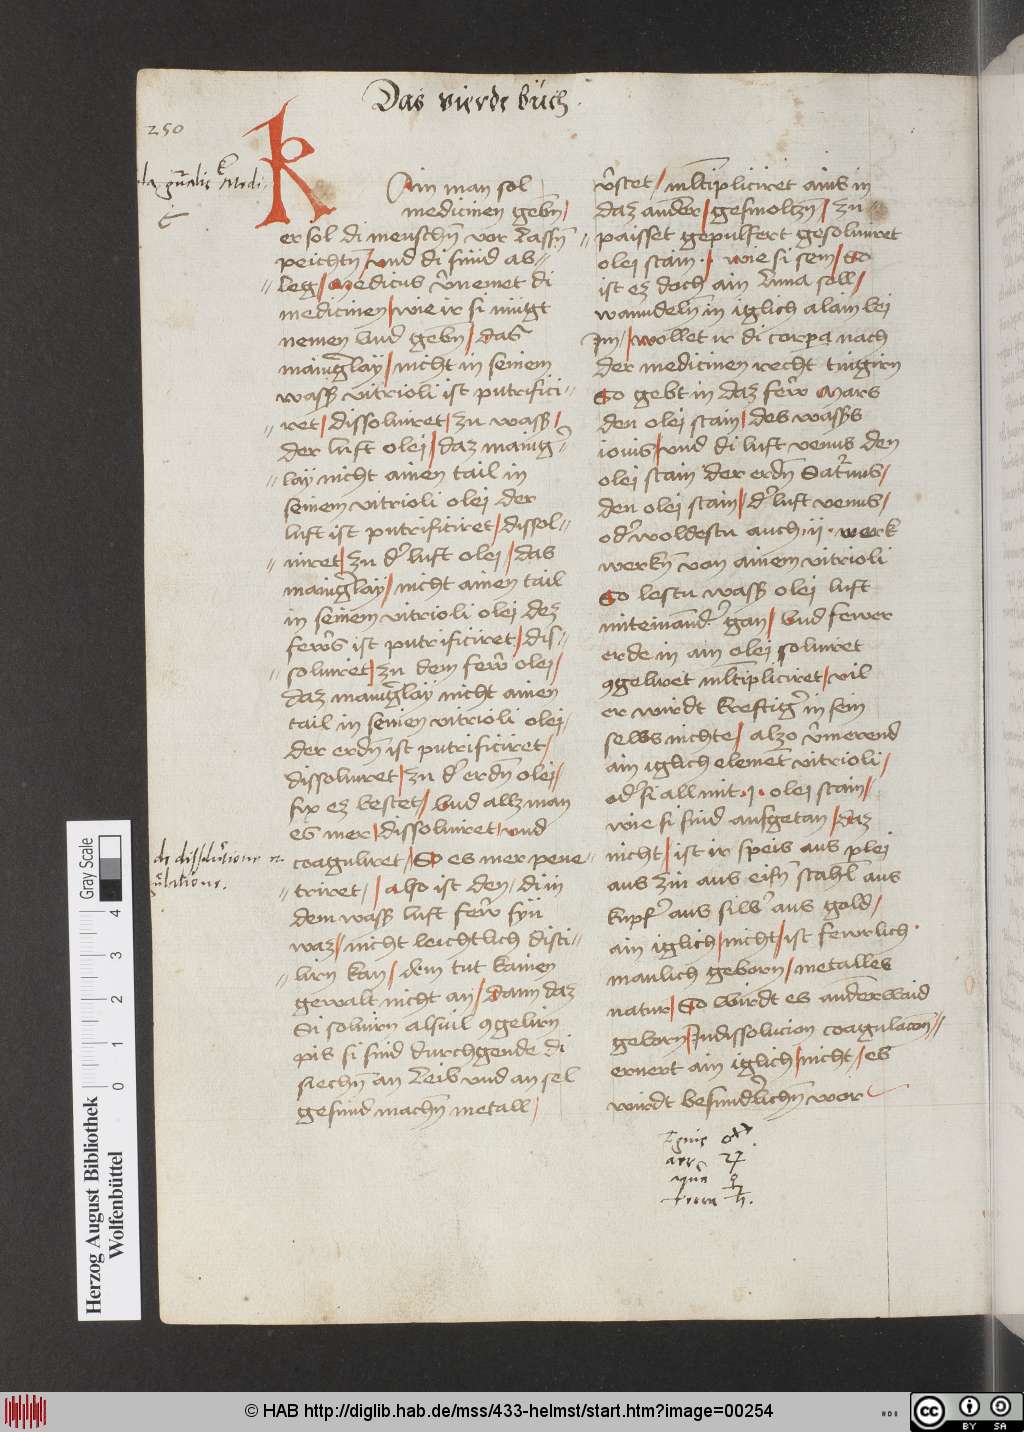 Das vierde búch.
250
K
Ain man sol
medicinen gebn̄/
er sol di menschn̄ vor lassn̄
peichtn̄/ und di sund ab=
leg/ Medicus v̄nemet di
medicinen/ wie ir si mugt
nemen vnd gebn̄/ das
manigslay/ nicht in seinem
wass̄ vitrioli ist putrifici=
ret/ dissoluiret/ zu wass̄/
der luft olei/ daz manig=
lay nicht ainen tail in
seinem vitrioli olei der
luft ist putrificiret/ dissol=
uiret/ zu d' luft olei/ das
manigslay/ nicht ainen tail
in seinem vitrioli olei dez
fewrs ist putrificiret/ dis=
soluiret/ zu dem fewr olei/
daz manigslay nicht ainen
tail in seinen vitrioli olei/
der erdn̄ ist putrificiret/
dissoluiret/ zu d' erdn̄ olei/
fix ez bestet/ vnd allz man
es mer/ dissoluiret/ und
coaguliret/ So es mer pene=
triret/ also ist den/ diin
dem wass̄ luft fewr
waz/ nicht leichtlich disti=
lirn kan/ dem tut kainen
gewalt nicht an/ dann daz
Si soluirn alsuil ꝯgelirn
pis si sind durchgende di
siechn̄ an leib und an sel
gesund machn̄ metall/
v̄stet/ ml̄tipliciret ains in
daz ander/ gesmoltzn̄/ zu=
paisset gepulfert gesoluiret
olei stain./ wie si sein/ So
ist ez doch ain soll/
wanndeln̄ in iglich alain bei
Im/ wollet ir di corpa nach
der medicinen recht tingirn
So gebt in daz fewr Mars
den olei stain/ des wass̄s
iouis/ und di luft venus den
olei stain der erdn̄ Sat'nus/
den olei stain/ d' luft venus/
od' woldestu auch .ii. werk
werkn̄ von ainem vitrioli
So lestu wass̄ olei luft
miteinand' gan/ vnd fewer
erde in ain olei soluiret
ꝯgeliret ml̄tipliciret/ vil
er wirdt kreftig' in sein
selbs nichte/ alzo v̄merend
ain iglich element vitrioli/
od' si all mit .i. olei stain/
wie si sind aufgetan/ daz
nicht/ ist ir speis aus plei
aus zin aus eisn̄ stachl aus
kupf' aus silb' aus gold/
ain iglich/ nicht/ ist fewrlich.
manlich geborn/ metalles
natur/ So wirdt es anderwaid
geborn/ Indissolucion coagulacon̄/
ernert ain iglich/ nicht/ es
wirdt besunderlichn̄ wor
Ignis ♂
aer ♃
aqua ♀
terra ♄.
Herzog August Bibliothek
Wolfenbüttel
Gray Scale
0 1 2 3 4
© HAB http://diglib.hab.de/mss/433-helmst/start.htm?image=00254
HAB
cc BY SA